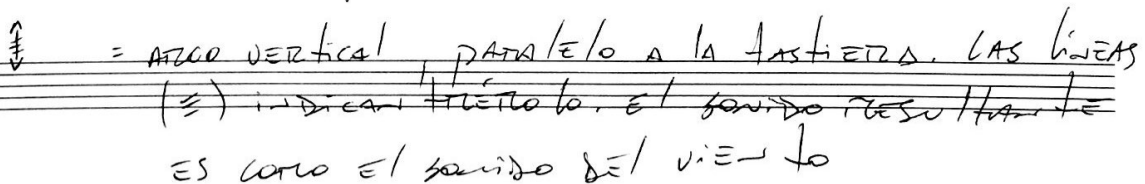 = ARCO VERTICAL, PARALELO A LA TASTIERA. LAS LÍNEAS
(≡) INDICAN TRÉMOLO. El SONIDO RESULTANTE
ES COMO El SONIDO DEl VIENTO